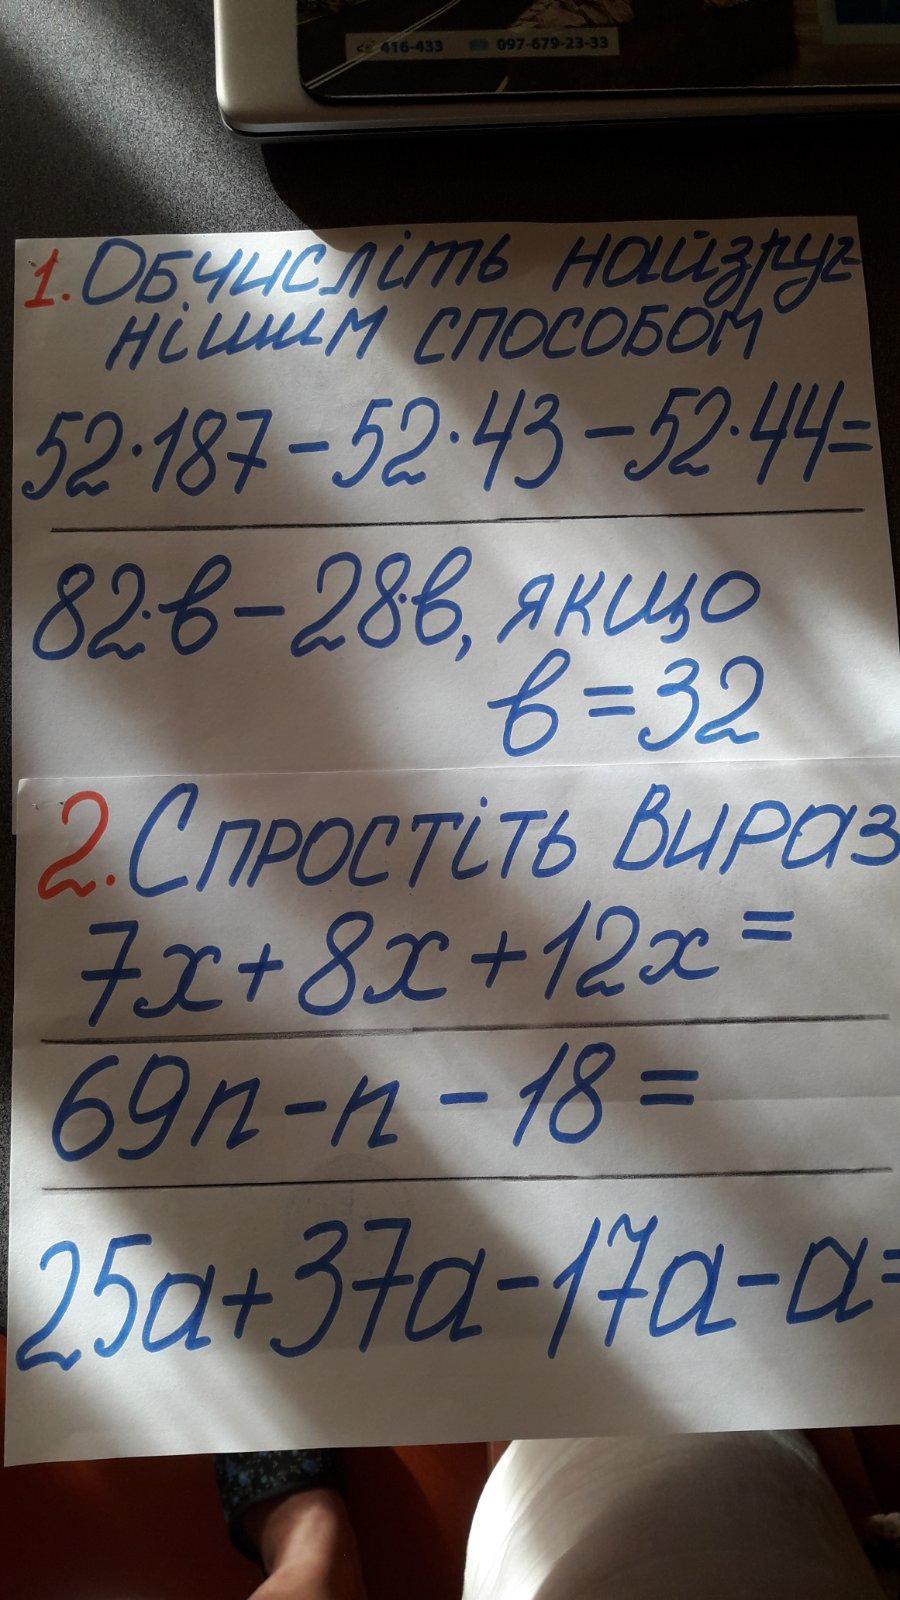 416-433 097-679-23-33
1. Обчисліть найзруч-
нішим способом
52·187-52·43-52·44=
82·в-28·в, якщо
в=32
2. Спростіть вираз
7x+8x+12x=
69n-n-18=
25a+37a-17a-a=